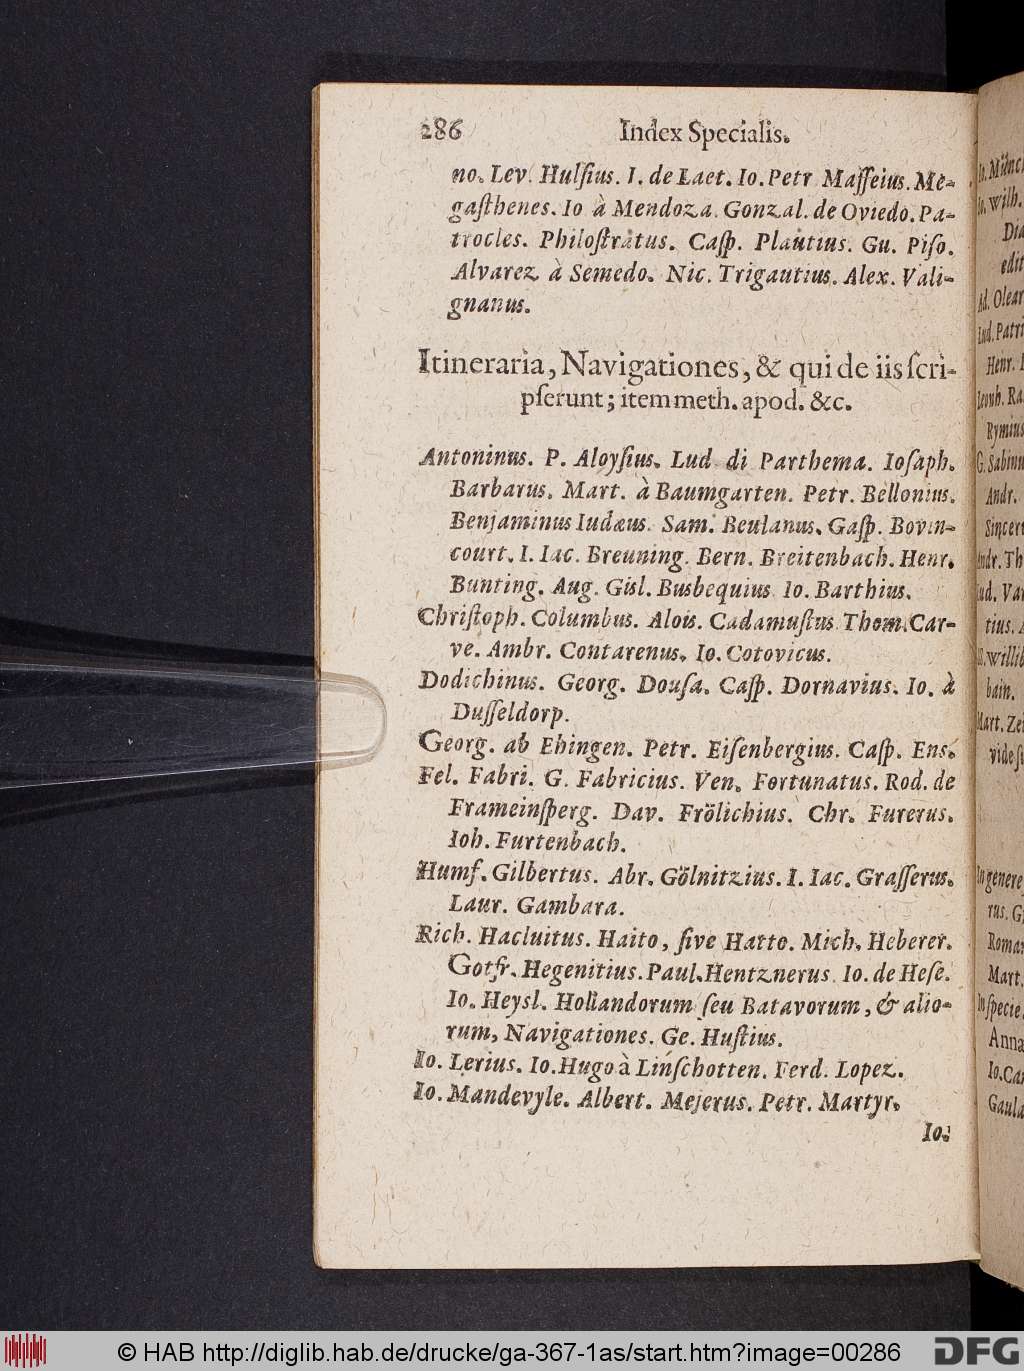 286 Index Specialis.
no. Lev. Hulſius. I. de Laet. Io. Petr Maffeius. Me-
gaſthenes. Io à Mendoza. Gonzal. de Oviedo. Pa-
trocles. Philoſtratus. Caſp. Plautius. Gu. Piſo.
Alvarez à Semedo. Nic. Trigautius. Alex. Vali-
gnanus.
Itineraria, Navigationes, & qui de iis ſcri-
pſerunt; item meth. apod. &c.
Antoninus. P. Aloyſius. Lud di Parthema. Ioſaph.
Barbarus. Mart. à Baumgarten. Petr. Bellonius.
Benjaminus Iudæus. Sam. Beulanus. Gaſp. Bovin-
court. I. Iac. Breuning. Bern. Breitenbach. Henr.
Bunting. Aug. Gisl. Busbequius Io. Barthius.
Chriſtoph. Columbus. Alois. Cadamuſtus Thom. Car-
ve. Ambr. Contarenus. Io. Cotovicus.
Dodichinus. Georg. Douſa. Caſp. Dornavius. Io. à
Duſſeldorp.
Georg. ab Ehingen. Petr. Eiſenbergius. Caſp. Ens.
Fel. Fabri. G. Fabricius. Ven. Fortunatus. Rod. de
Frameinſperg. Dav. Frölichius. Chr. Furerus.
Ioh. Furtenbach.
Humf. Gilbertus. Abr. Gölnitzius. I. Iac. Graſſerus.
Laur. Gambara.
Rich. Hacluitus. Haito, ſive Hatto. Mich. Heberer.
Gotfr. Hegenitius. Paul. Hentznerus Io. de Heſe.
Io. Heysl. Hollandorum ſeu Batavorum, & alio-
rum, Navigationes. Ge. Huſtius.
Io. Lerius. Io. Hugo à Linſchotten. Ferd. Lopez.
Io. Mandevyle. Albert. Mejerus. Petr. Martyr.
Io.
Io. Wilh.
edit
Ad. Olear
Lud. Patri
Henr.
Leonh. Ra
Rymius
G. Sabinu
Andr.
Sincer
Andr. Th
Lud. Var
tius.
S. Willib
bain.
Mart. Zei
vide ſi
In genere
rus. G
Roman
Mart.
In ſpecie
Anna
Io. Ca
Gaula
© HAB http://diglib.hab.de/drucke/ga-367-1as/start.htm?image=00286
DFG